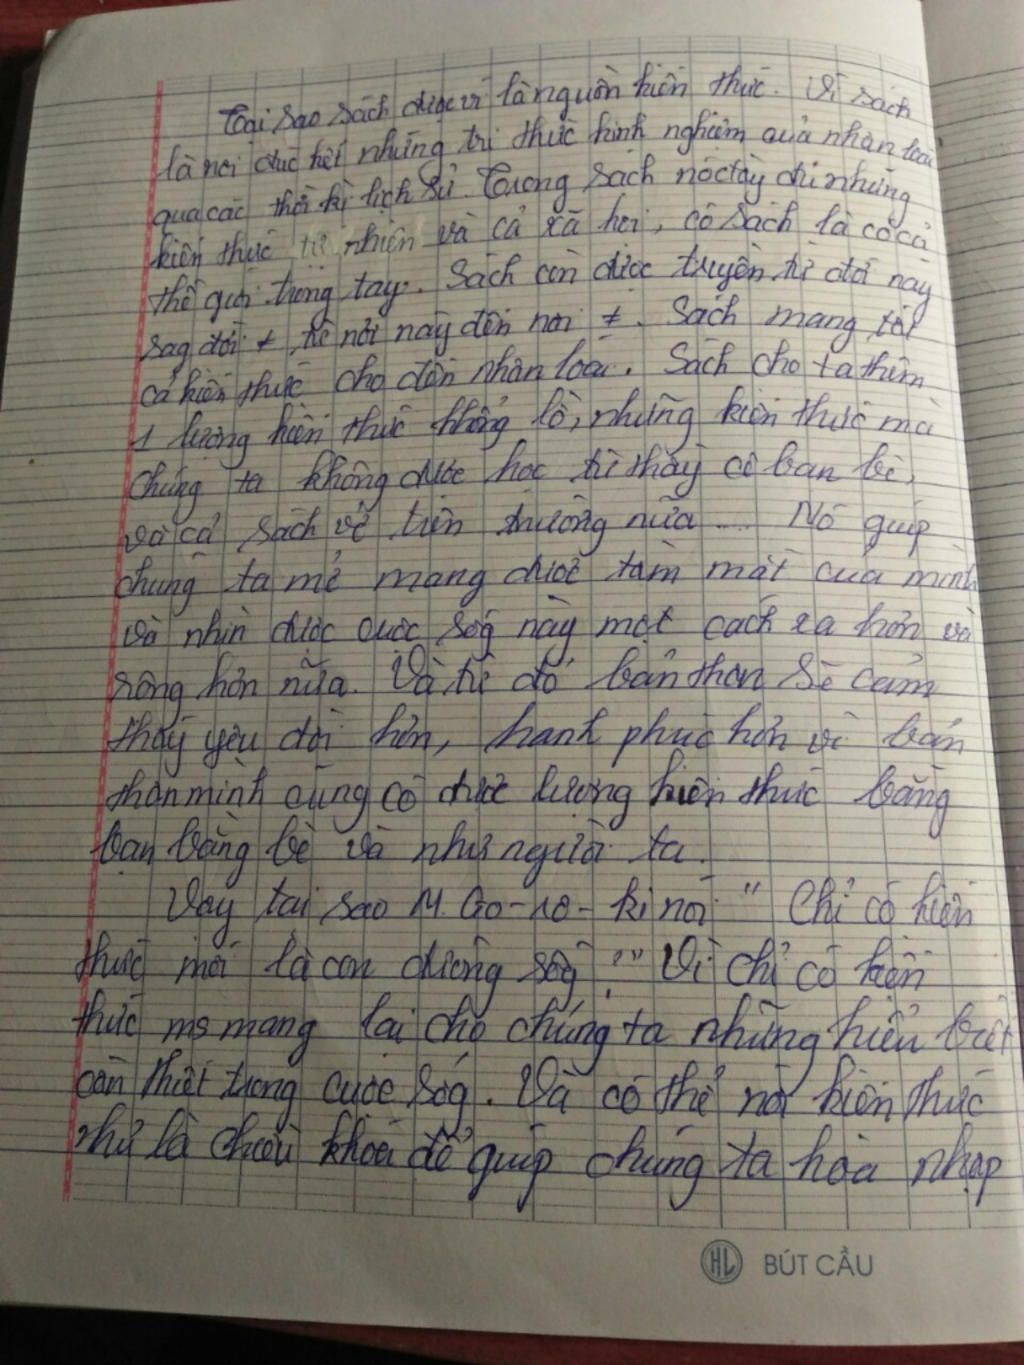 Tại sao sách được ví là nguồn kiến thức. Vì sách
là nơi đúc kết những tri thức kinh nghiệm của nhân loại
qua các thời kì lịch sử. Trong sách nó đầy đủ những
kiến thức tự nhiên và cả xã hội, có sách là có cả
thế giới trong tay. Sách còn được truyền từ đời này
sag đời ≠, từ nơi này đến nơi ≠. Sách mang tất
cả kiến thức cho đến nhân loại. Sách cho ta thêm
1 lượng kiến thức khổng lồ, những kiến thức mà
chúng ta không được học từ thầy cô bạn bè,
và cả sách về trên trường nữa ... Nó giúp
chúng ta mở mang được tầm mắt của mình
và nhìn được cuộc sốg này một cách xa hơn và
rộng hơn nữa. Và từ đó bản thân sẽ cảm
thấy yêu đời hơn, hạnh phúc hơn vì bản
thân mình cũng có được lượng kiến thức bằng
bạn bằng bè và như người ta.
Vậy tại sao M. Go-rơ-ki nói " Chỉ có kiến
thức mới là con đường sốg ?" Vì chỉ có kiến
thức ms mang lại cho chúng ta những hiểu biết
cần thiết trong cuộc sốg. Và có thể nói kiến thức
như là chìa khoá để giúp chúng ta hòa nhập
HL BÚT CẦU